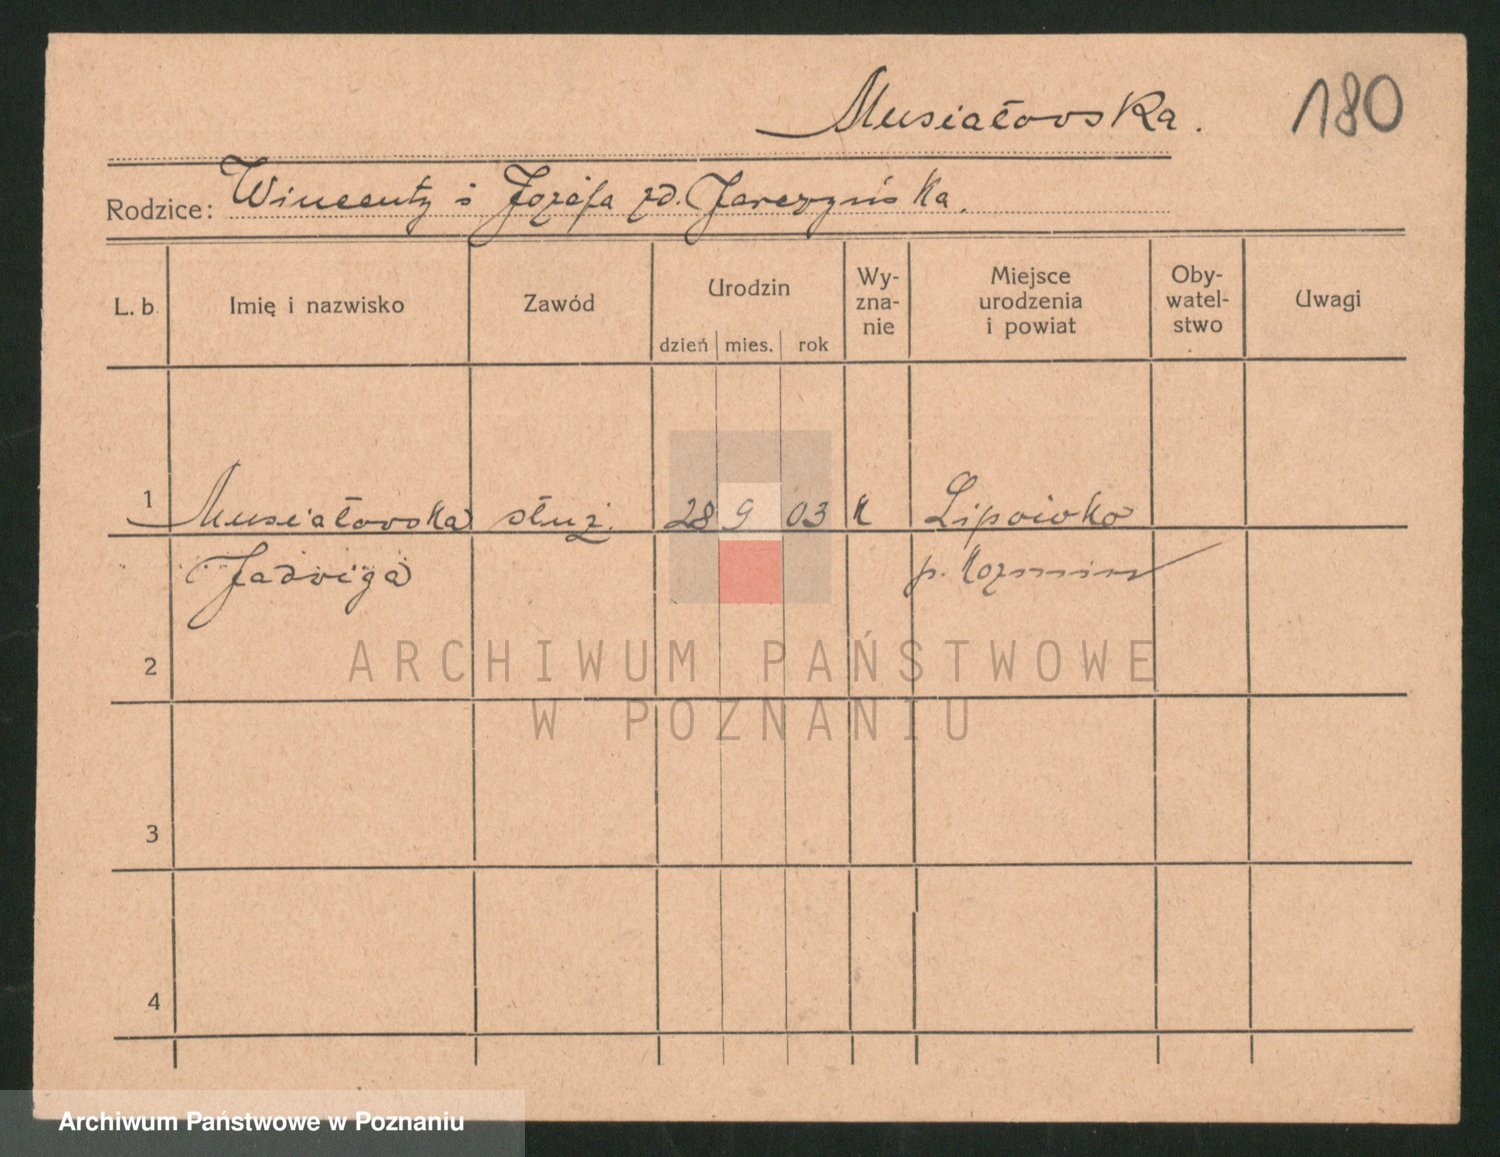 Musiałowska.
180
Rodzice: Wincenty i Józefa zd. Jarczyńska.
L. b. Imię i nazwisko Zawód Urodzin dzień mies. rok Wy-zna-nie Miejsce urodzenia i powiat Oby-watel-stwo Uwagi
1 Musiałowska służ. 28 9 03 k Lipowko
Jadwiga p. Kozmin
2
3
4
ARCHIWUM PAŃSTWOWE
W POZNANIU
Archiwum Państwowe w Poznaniu